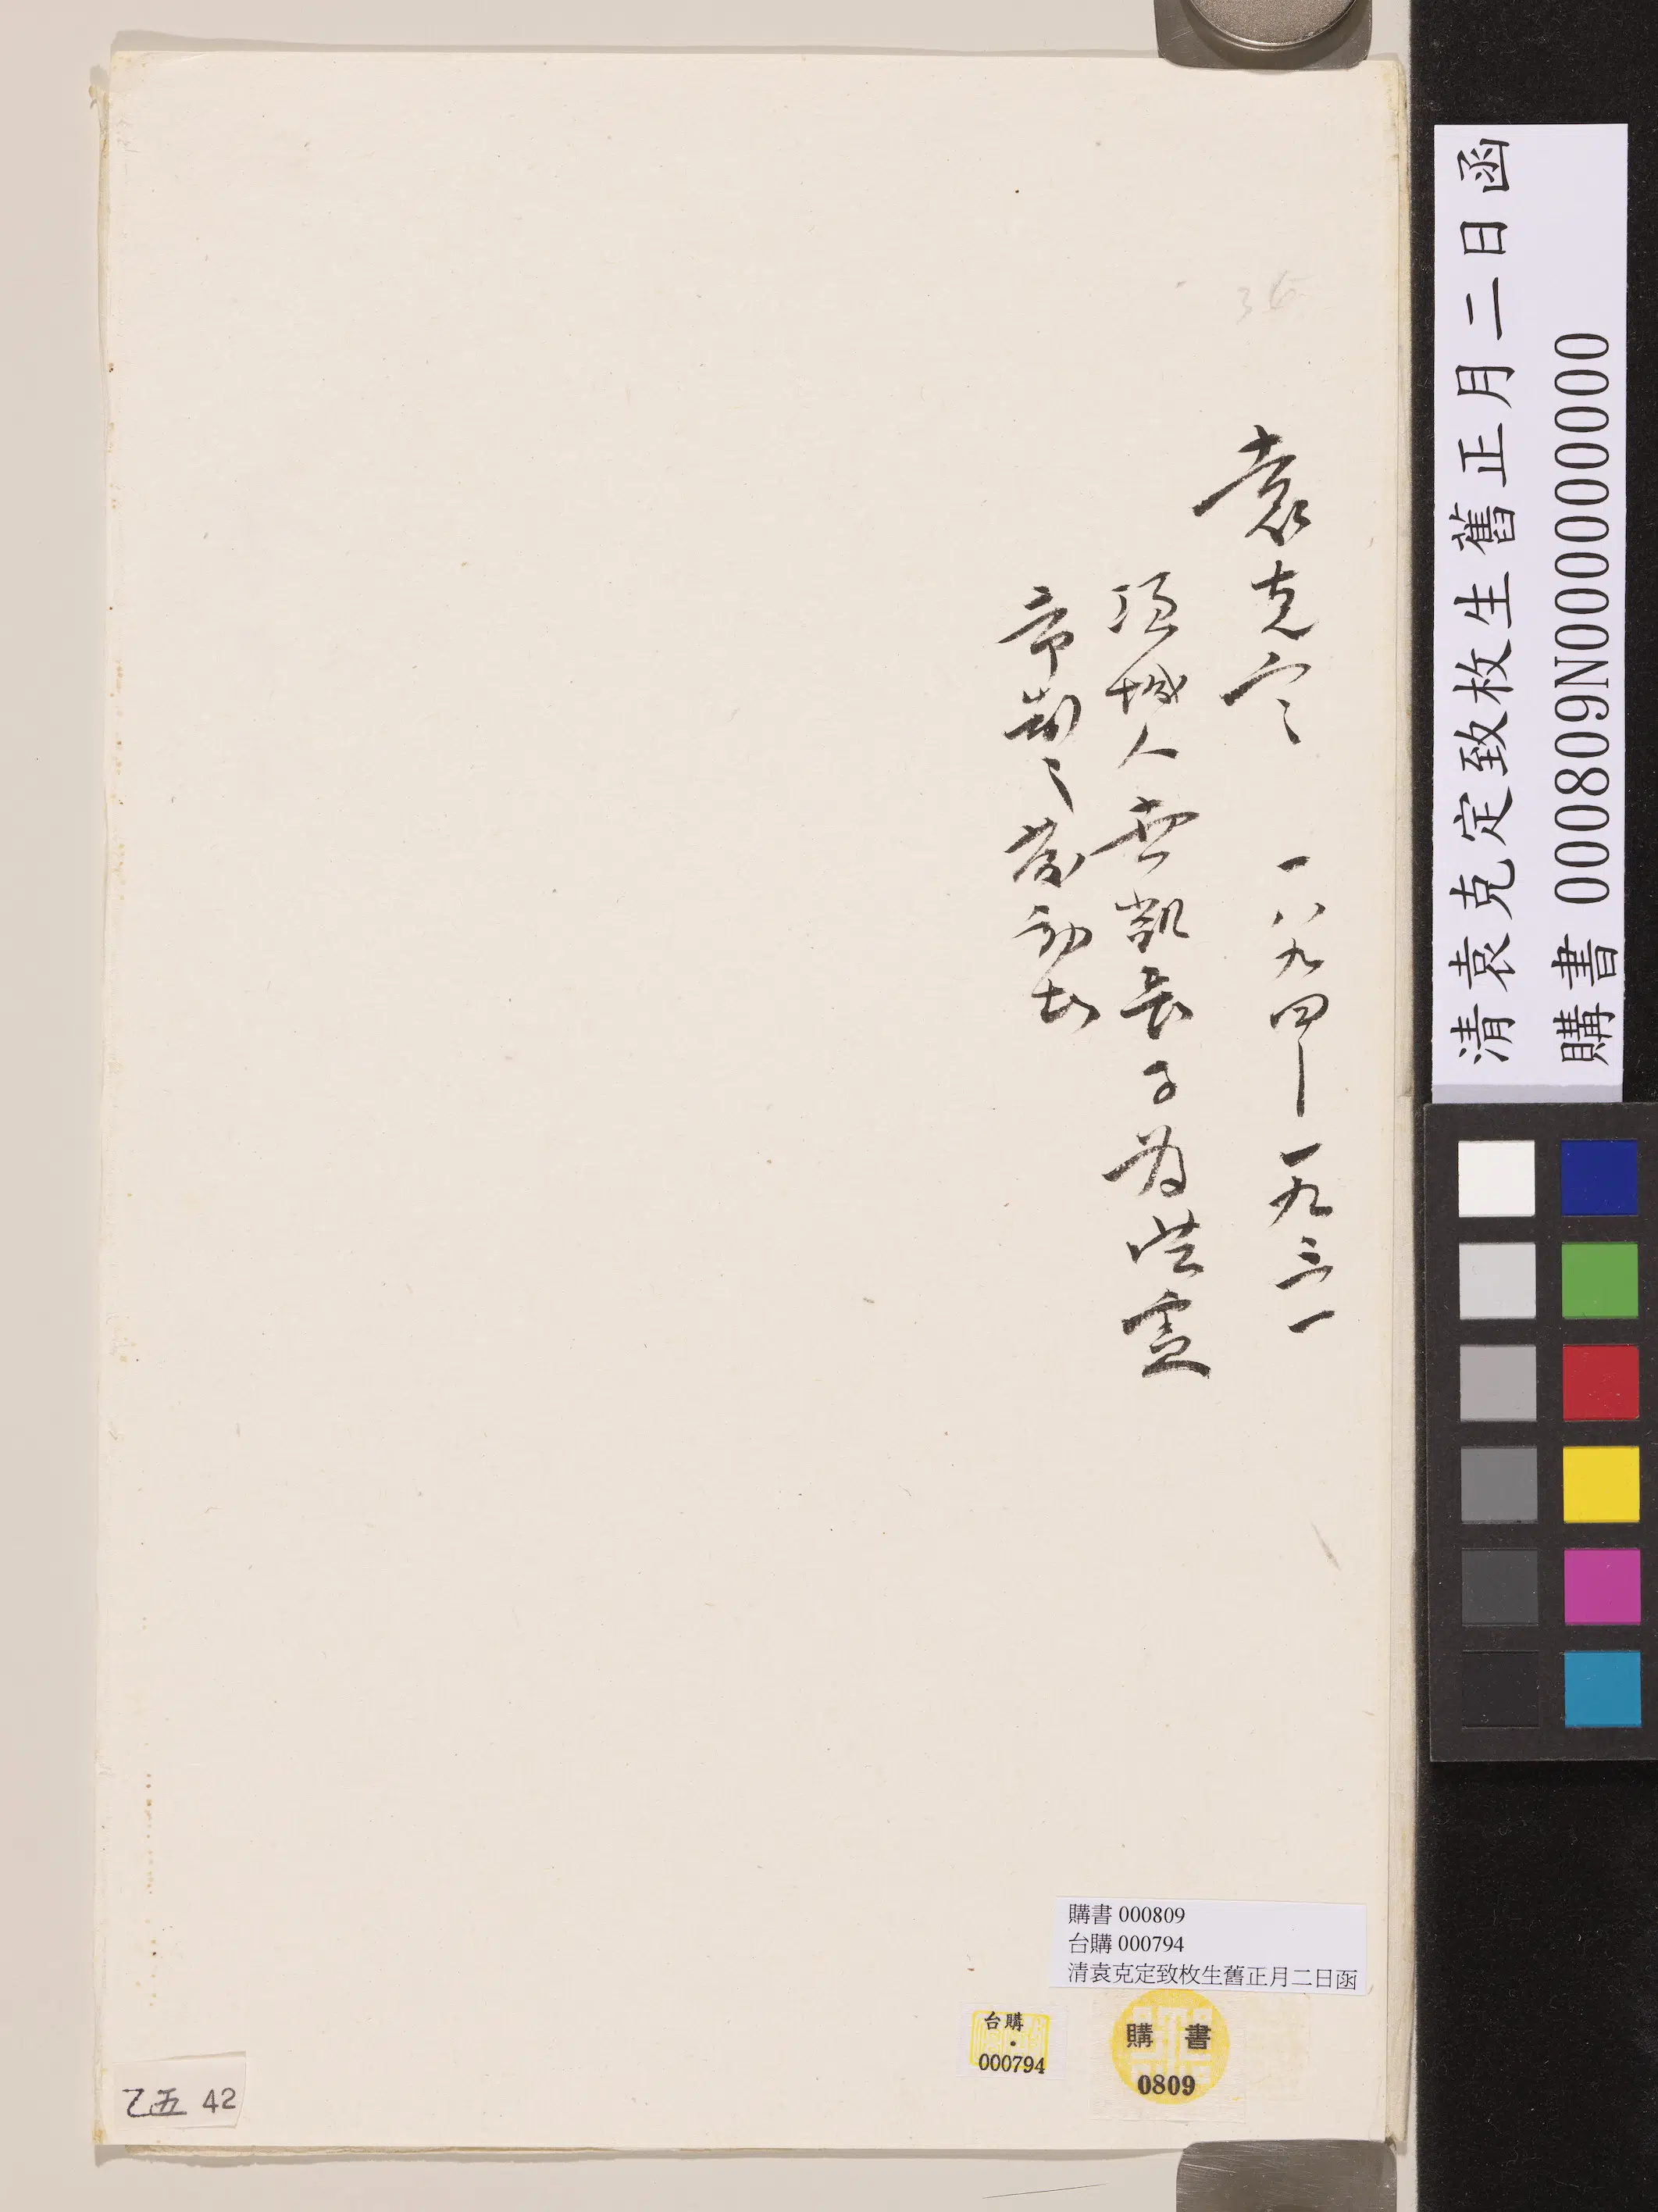 袁克定 一八九四—一九三一
項城人世凱長子為洪憲
帝制之發動者
清袁克定致枚生舊正月二日函
購書 000809N000000000
購書 000809
台購 000794
清袁克定致枚生舊正月二日函
台購
000794
購 書
0809
乙五 42